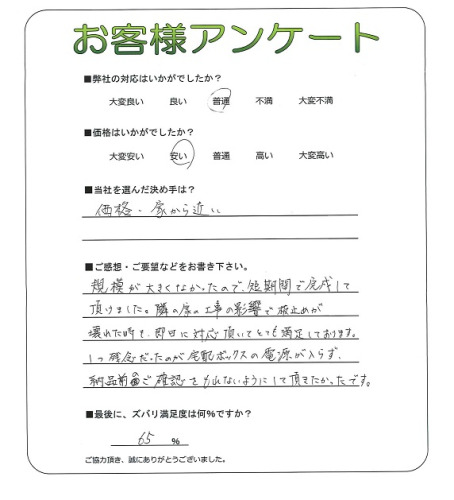 お客様アンケート
■弊社の対応はいかがでしたか?
大変良い 良い 普通 不満 大変不満
■価格はいかがでしたか?
大変安い 安い 普通 高い 大変高い
■当社を選んだ決め手は?
価格・家から近い
■ご感想・ご要望などをお書き下さい。
規模が大きくなかったので、短期間で完成して
頂けました。隣の家の工事の影響で 止めが
壊れた時も、即日に対応頂いてとても満足しております。
1つ残念だったのが宅配ボックスの電源が入らず、
納品前のご確認をもれないようにして頂きたかったです。
■最後に、ズバリ満足度は何%ですか?
65 %
ご協力頂き、誠にありがとうございました。